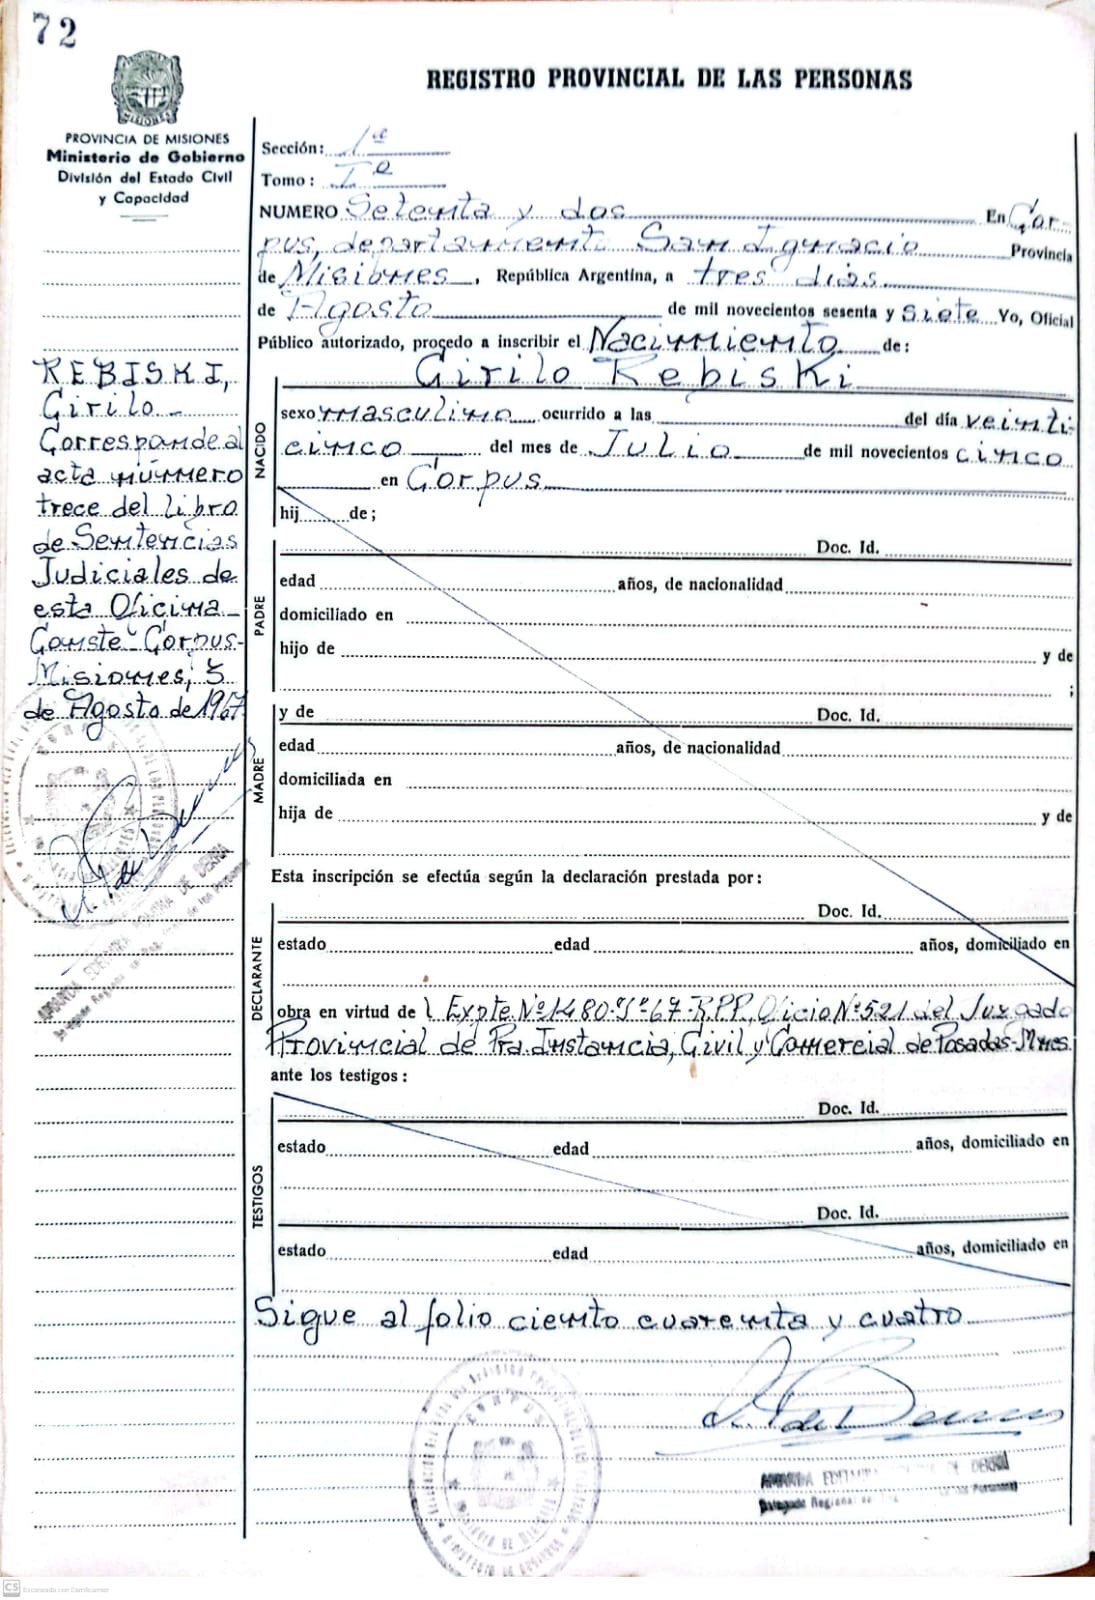 72
REGISTRO PROVINCIAL DE LAS PERSONAS
PROVINCIA DE MISIONES
Ministerio de Gobierno
División del Estado Civil
y Capacidad
Sección: 1ª
Tomo: Iº
NUMERO Setenta y dos En Cor-
pus, departamento San Ignacio Provincia
de Misiones, República Argentina, a tres dias
de Agosto de mil novecientos sesenta y Siete Yo, Oficial
Público autorizado, procedo a inscribir el Nacimiento de:
REBISKI,
Cirilo-
Corresponde al
acta número
trece del libro
de Sentencias
Judiciales de
esta Oficina
Conste-Corpus-
Misiones, 3
de Agosto de 1967
NACIDO
Cirilo Rebiski
sexo masculino ocurrido a las del día veinti-
cinco del mes de Julio de mil novecientos cinco
en Corpus
hij de;
PADRE
Doc. Id.
edad años, de nacionalidad
domiciliado en
hijo de y de
;
MADRE
y de Doc. Id.
edad años, de nacionalidad
domiciliada en
hija de y de
Esta inscripción se efectúa según la declaración prestada por:
DECLARANTE
Doc. Id.
estado edad años, domiciliado en
obra en virtud de Expte.Nº1480 67-R.P.P. Oficio Nº521 del Juzgado
Provincial de Pra.Instancia, Civil y Comercial de Posadas-Mnes.
ante los testigos:
TESTIGOS
Doc. Id.
estado edad años, domiciliado en
Doc. Id.
estado edad años, domiciliado en
Sigue al folio ciento cuarenta y cuatro
CORPUS
DE DERNA
CORPUS
Delegado Regional
CS Escaneado con CamScanner